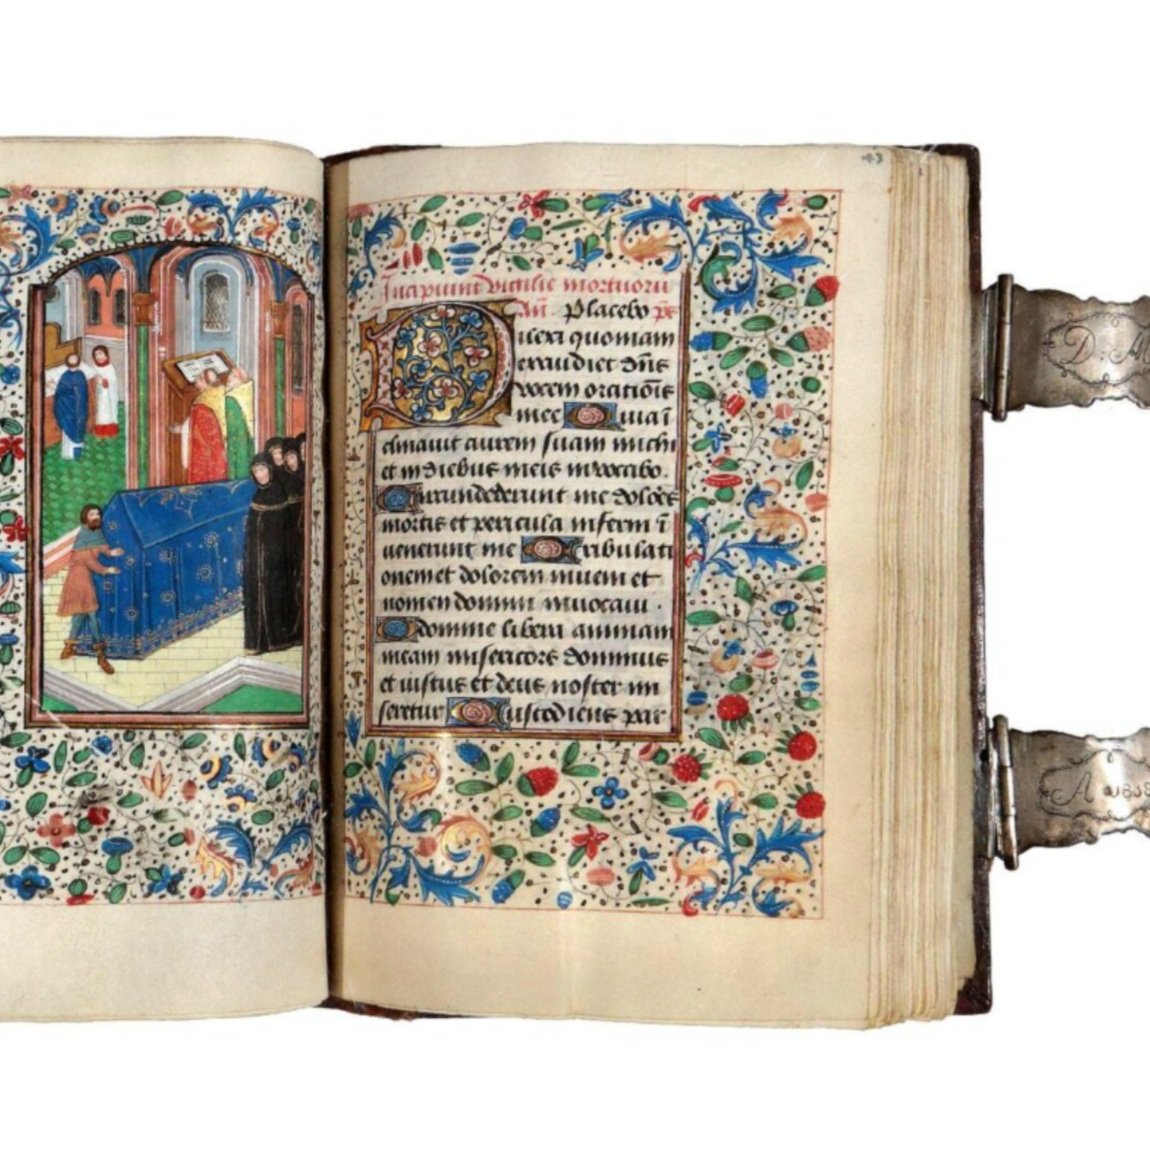 Incipiunt vigilie mortuoru
An̄. Placebo
Dilexi quoniam
exaudiet dn̄s
vocem orationis
mee Quia ī
clinavit aurem suam michi
et in diebus meis invocabo.
Circundederunt me dolores
mortis et pericula inferni ī
venerunt me Tribulati
onem et dolorem inveni et
nomen domini invocavi .
O domine libera animam
meam misericors dominus
et iustus et deus noster mi
seretur Custodiens par
D: M
A 1838